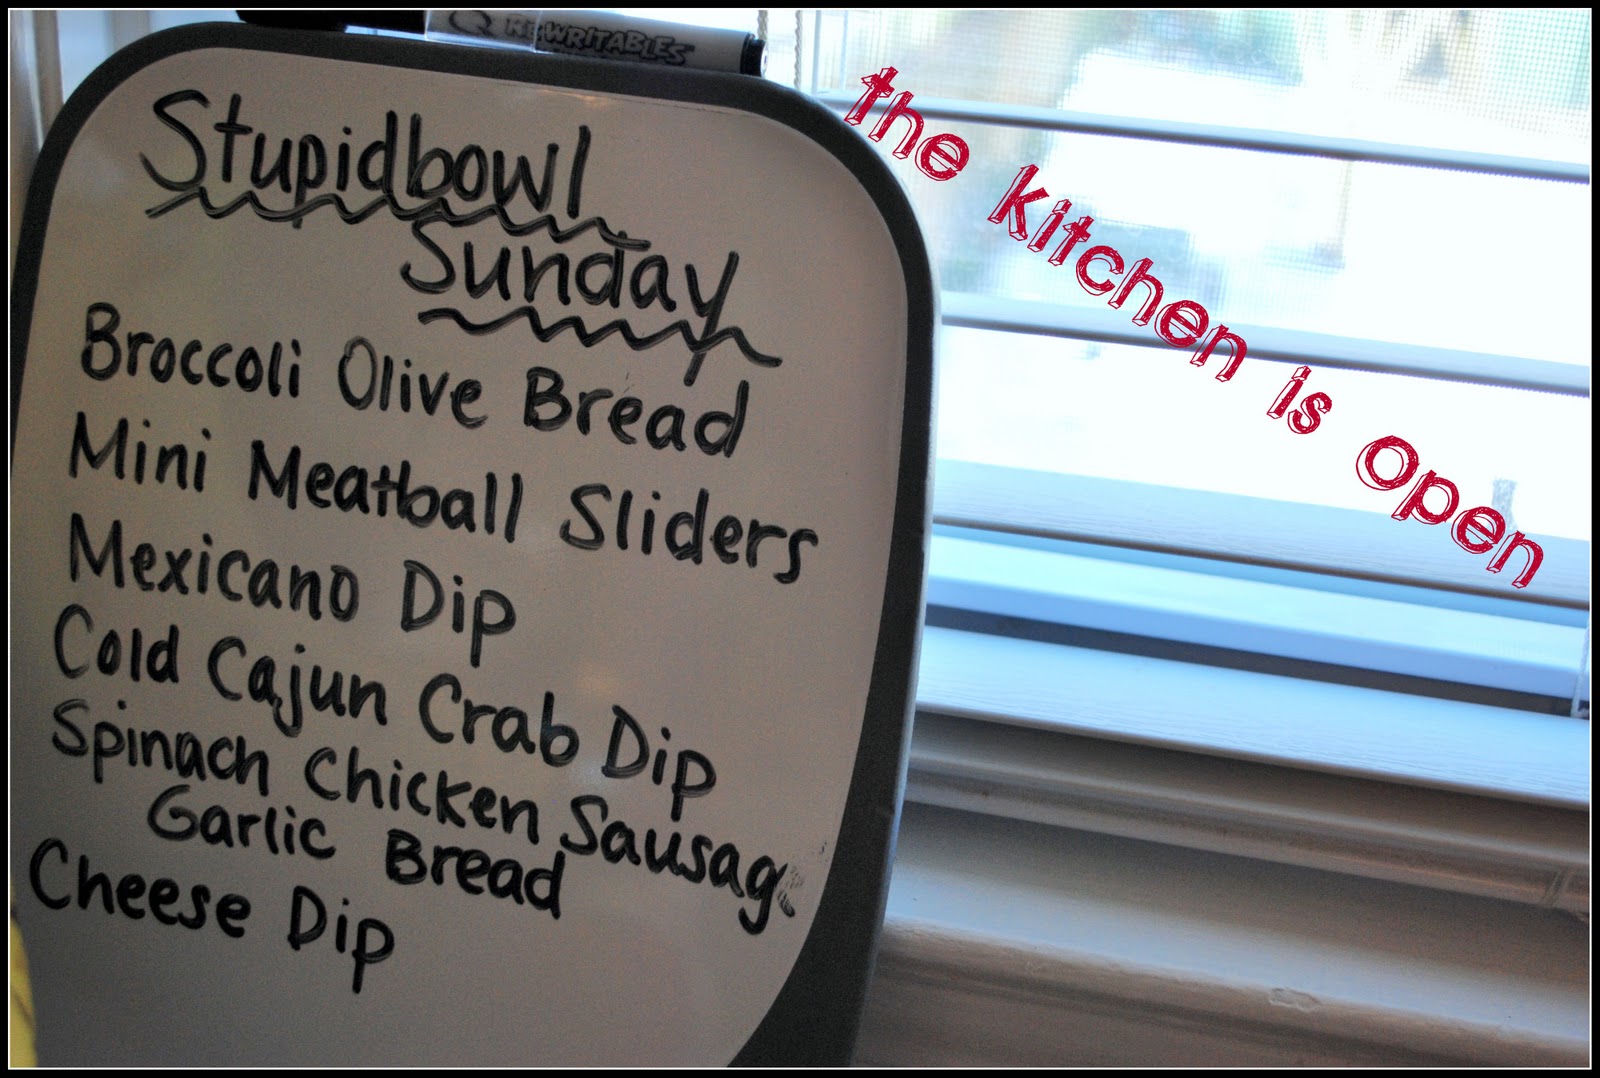 REWRITABLES
Stupidbowl
Sunday
Broccoli Olive Bread
Mini Meatball Sliders
Mexicano Dip
Cold Cajun Crab Dip
Spinach Chicken Sausage
Garlic Bread
Cheese Dip
the kitchen is Open